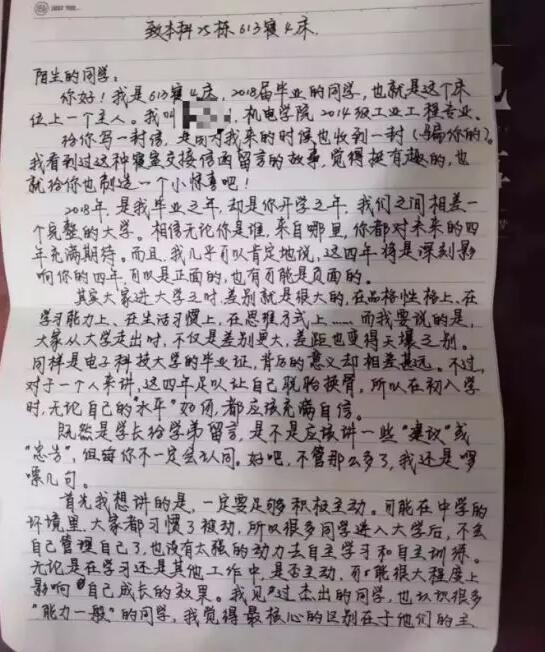 致本科25栋613寝4床.
陌生的同学:
你好!我是613寝4床,2018届毕业的同学,也就是这个床
位上一个主人。我叫,机电学院2014级工业工程专业。
给你写一封信,是因为我来的时候也收到一封(骗你的)。
我看到过这种寝室交接信函留言的故事,觉得挺有趣的,也
就给你也制造一个小惊喜吧!
2018年,是我毕业之年,却是你开学之年,我们之间相差一
个完整的大学。相信无论你是谁,来自哪里,你都对未来的四
年充满期待。而且,我几乎可以肯定地说,这四年将是深刻影
响你的四年,可以是正面的,也有可能是负面的。
其实大家进大学之时,差别就是很大的,在品格性格上、在
学习能力上、在生活习惯上,在思维方式上……而我要说的是,
大家从大学走出时,不仅是差别更大,差距也变得天壤之别。
同样是电子科技大学的毕业证,背后的意义却相差甚远。不过,
对于一个人来讲,这四年足以让自己脱胎换骨,所以在初入学
时,无论自己的“水平”如何,都应该充满自信。
既然是学长给学弟留言,是不是应该讲一些“建议”或
“忠告”,但每你不一定会认同。好吧,不管那么多了,我还是啰
嗦几句。
首先我想讲的是,一定要足够积极主动。可能在中学的
环境里,大家都习惯了被动,所以很多同学进入大学后,不会
自己管理自己了,也没有太强的动力去自主学习和自主训练。
无论是在学习还是其他工作中,是否主动,可能很大程度上
影响自己成长的效果。我见过杰出的同学,也认识很多
“能力一般”的同学,我觉得最核心的区别在于他们的主